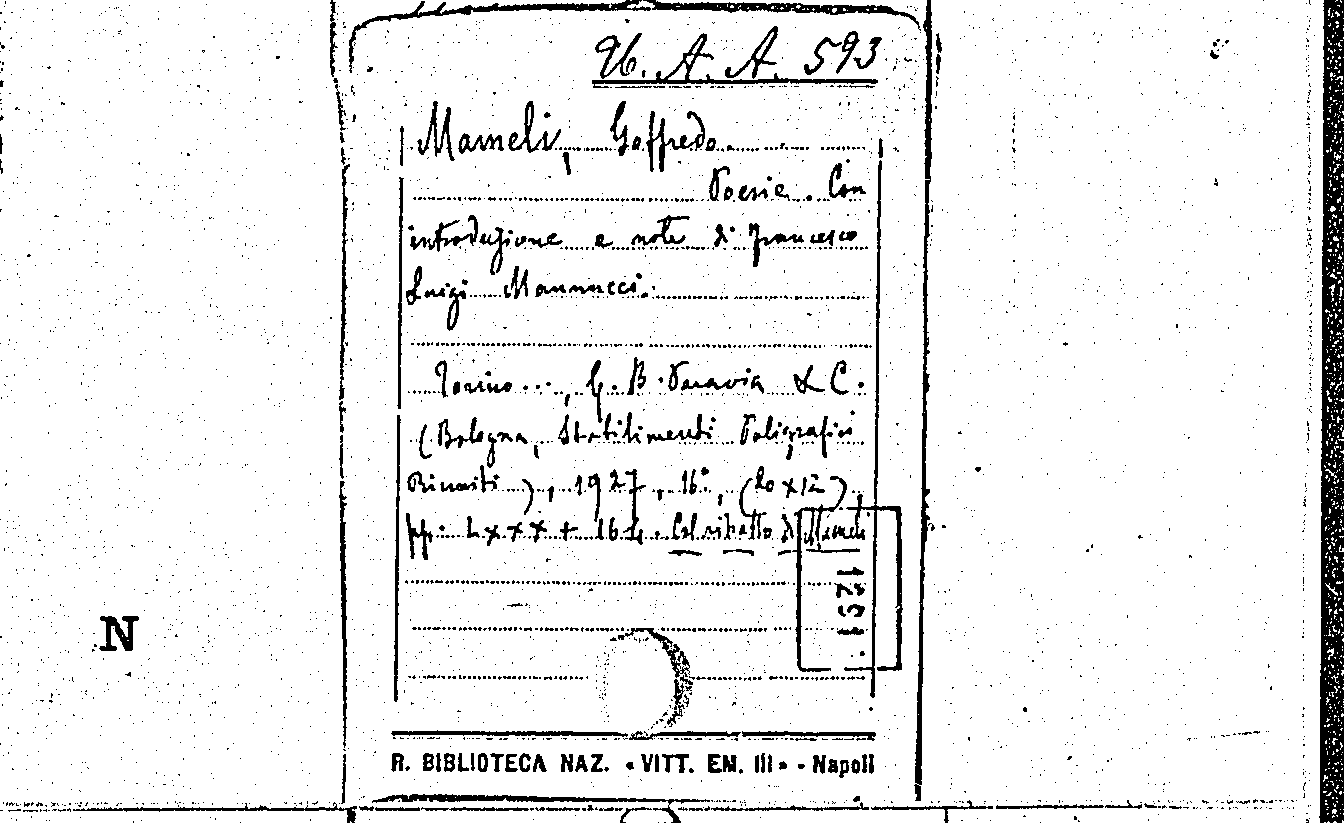 A. A. 593
Mameli, Goffredo.
Poesie. Con
introduzione e note di Francesco
Luigi Mannucci.
Torino..., G. B. Paravia & C.
(Bologna, Stabilimenti Poligrafici
Riuniti), 1927, 16°, (20 x 12),
pp. LXXX + 164. Col ritratto di Mameli
1291
N
R. BIBLIOTECA NAZ. «VITT. EM. III» - Napoli